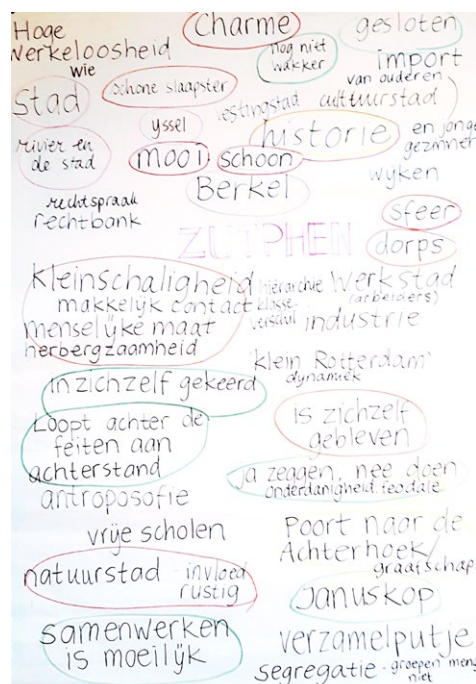 Hoge
werkeloosheid
wie
charme
gesloten
nog niet
wakker
import
van ouderen
en jonge
gezinnen
stad
schone slaapster
vestingstad
cultuurstad
yssel
historie
rivier en
de stad
mooi
schoon
wyken
Berkel
rechtspraak
rechtbank
sfeer
ZUTPHEN
dorps
kleinschaligheid
makkelijk contact
menselijke maat
herbergzaamheid
hiërarchie
klasse-
verschil
werkstad
(arbeiders)
industrie
'klein Rotterdam'
dynamiek
in zichzelf gekeerd
Loopt achter de
feiten aan
achterstand
is zichzelf
gebleven
ja zeggen, nee doen
onderdanigheid feodale
antroposofie
vrije scholen
Poort naar de
Achterhoek/
graafschap
natuurstad - invloed
rustig
Januskop
samenwerken
is moeilijk
verzamelputje
segregatie - groepen
niet